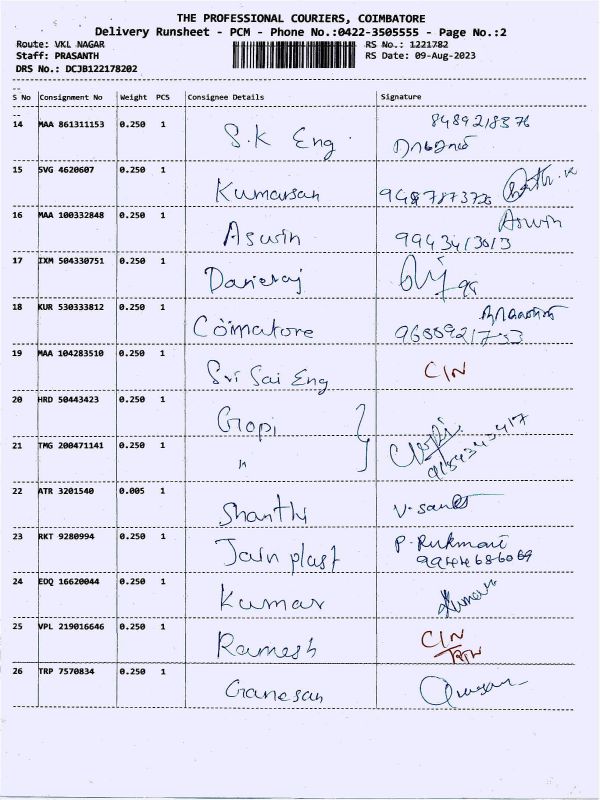 THE PROFESSIONAL COURIERS, COIMBATORE
Delivery Runsheet - PCM - Phone No.:0422-3505555 - Page No.:2
Route: VKL NAGAR RS No.: 1221782
Staff: PRASANTH RS Date: 09-Aug-2023
DRS No.: DCJB122178202
S No Consignment No Weight PCS Consignee Details Signature
14 MAA 861311153 0.250 1 S.K Eng 8489218376
15 SVG 4620607 0.250 1 Kumarsan
16 MAA 100332848 0.250 1 Aswin Aswin
9943413013
17 IXM 504330751 0.250 1
18 KUR 530333812 0.250 1 Coimatore
19 MAA 104283510 0.250 1 Sri Sai Eng C/N
20 HRD 50443423 0.250 1 Gopi
21 TMG 200471141 0.250 1 "
22 ATR 3201540 0.005 1 Shanthi
23 RKT 9280994 0.250 1 Jain plast P. Rukmani
9944686069
24 EDQ 16620044 0.250 1 Kumar
25 VPL 219016646 0.250 1 Ramesh C/N
26 TRP 7570834 0.250 1 Ganesan